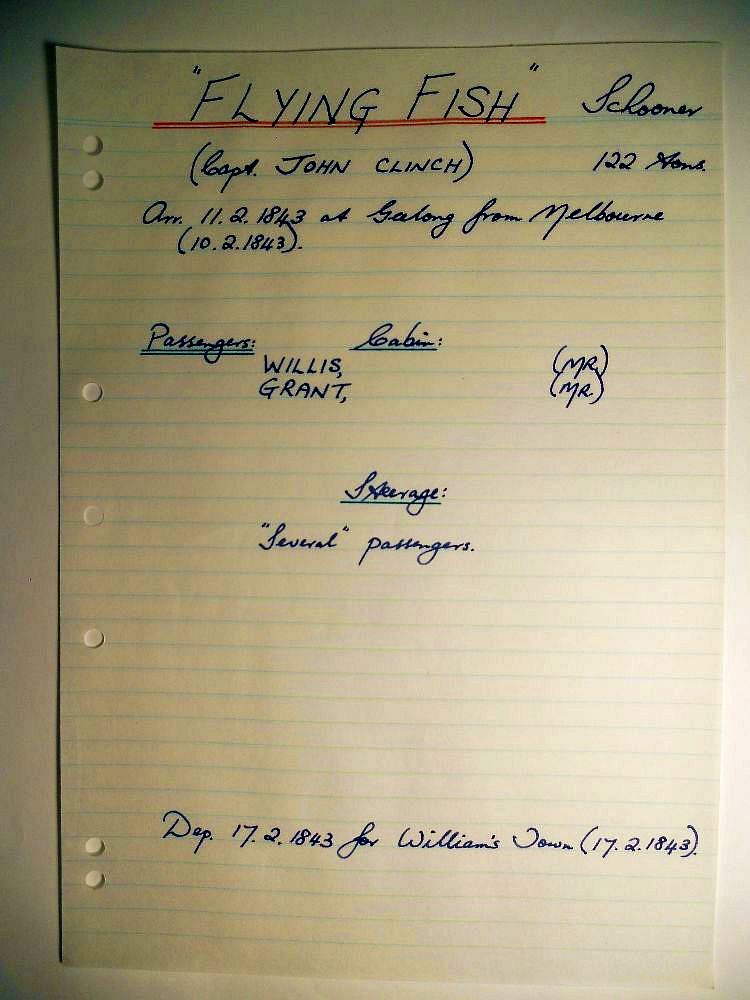 "FLYING FISH" Schooner
(Capt. JOHN CLINCH) 122 tons.
Arr. 11.2.1843 at Geelong from Melbourne
(10.2.1843).
Passengers: Cabin:
WILLIS, (MR)
GRANT, (MR.)
Steerage:
"Several" passengers.
Dep. 17.2.1843 for William's Town (17.2.1843).